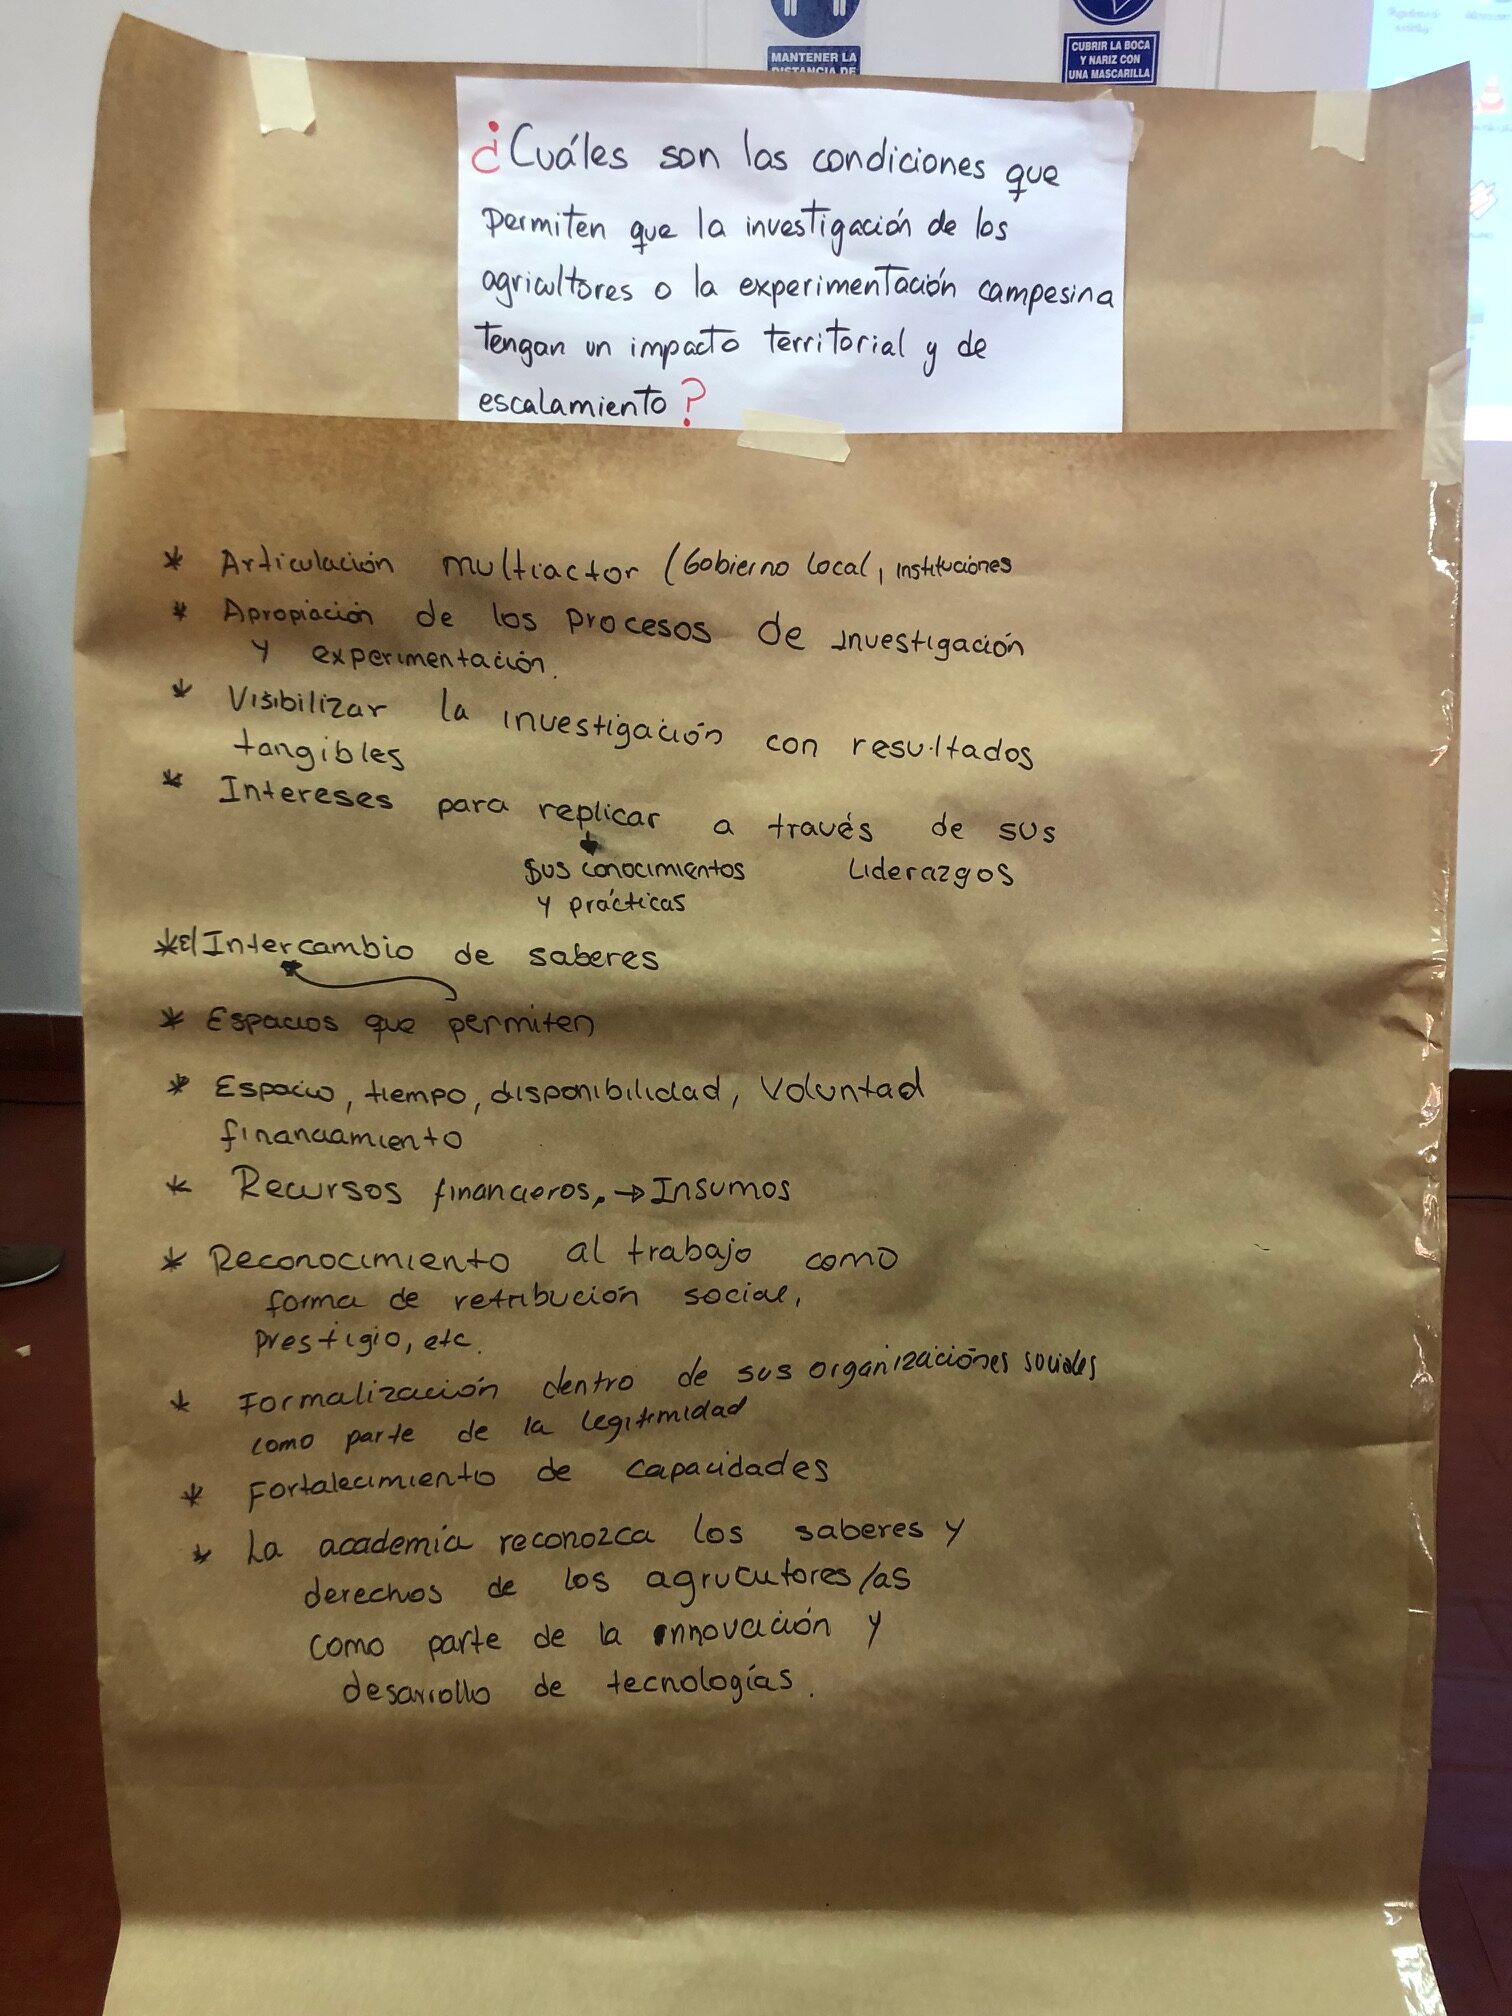 MANTENER LA
DISTANCIA DE
CUBRIR LA BOCA
Y NARIZ CON
UNA MASCARILLA
¿Cuáles son las condiciones que
permiten que la investigación de los
agricultores o la experimentación campesina
tengan un impacto territorial y de
escalamiento?
* Articulación multiactor (Gobierno Local, instituciones
* Apropiación de los procesos de investigación
y experimentación.
* Visibilizar la investigación con resultados
tangibles
* Intereses para replicar a través de sus
sus conocimientos Liderazgos
y prácticas
* el Intercambio de saberes
* Espacios que permiten
* Espacio, tiempo, disponibilidad, Voluntad
financiamiento
* Recursos financieros, → Insumos
* Reconocimiento al trabajo como
forma de retribución social,
prestigio, etc.
* Formalización dentro de sus organizaciónes sociales
como parte de la legitimidad
* Fortalecimiento de capacidades
* La academia reconozca los saberes y
derechos de los agrucutores/as
como parte de la innovación y
desarrollo de tecnologías.